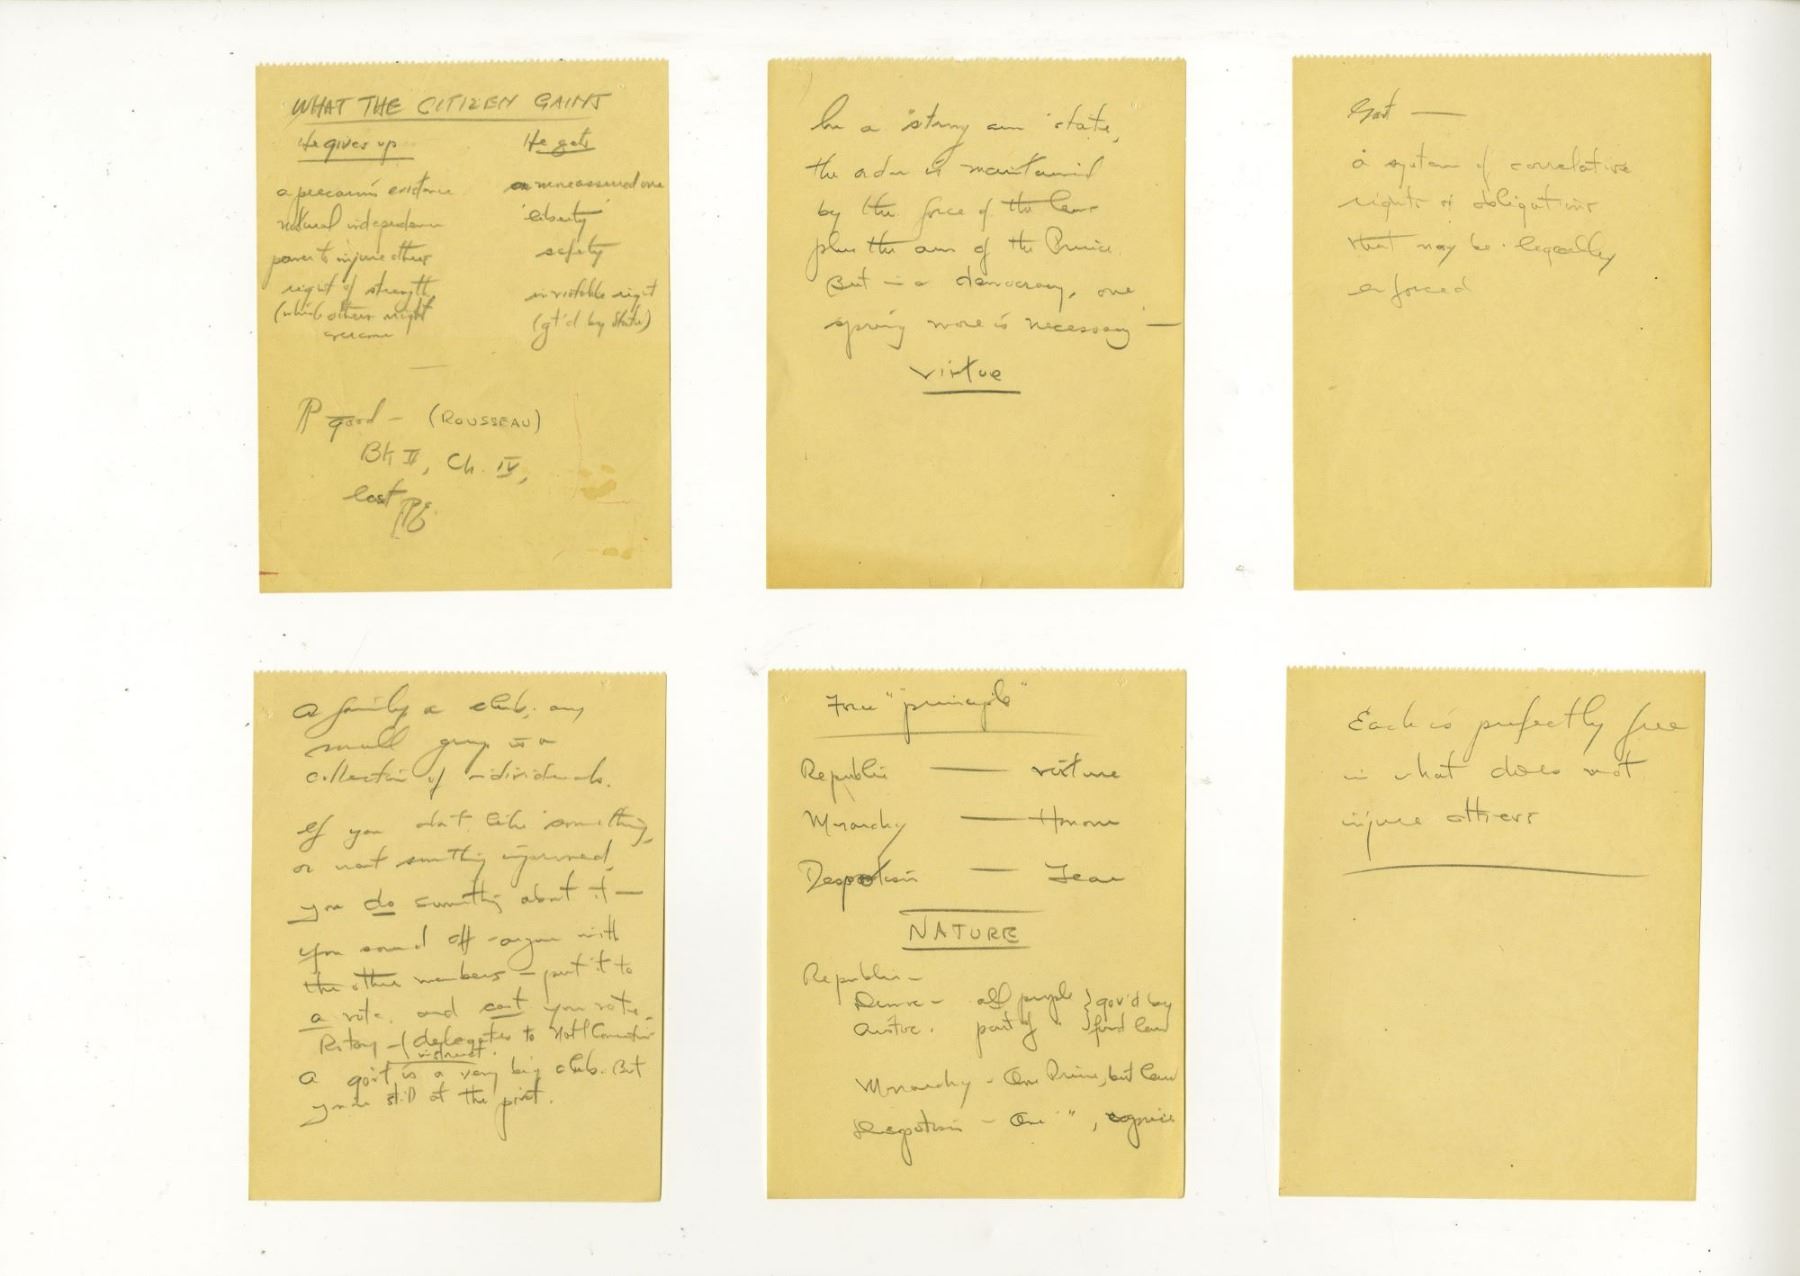 WHAT THE CITIZEN GAINS
He gives up
He gets
a precarious existence
a more assured one
natural independence
"liberty"
power to injure others
safety
right of strength
inviolable right
(which others might
(gt'd by State)
overcome
good – (ROUSSEAU)
Bk II, Ch. IV,
last
In a "strong arm" state,
the order is maintained
by the force of the law
plus the arm of the Prince.
But in a democracy, one
spring more is necessary –
virtue
Govt —
a system of correlative
rights & obligations
that may be legally
enforced
A family, a club, any
small group is a
collection of individuals.
If you don't like something,
or want something improved,
you do something about it –
you sound off – argue with
the other members – put it to
a vote, and cast your vote.
Rotary – (delegates to Nat'l Convention
instruct.
A gov't is a very big club. But
you're still at the point.
"principle"
Republic — virtue
Monarchy — Honour
Despotism — Fear
NATURE
Republic –
Democ – all people } gov'd by
Aristoc. part of " } fund law
Monarchy – One Prince, but law
Despotism – One " , caprice
Each is perfectly free
in what does not
injure others